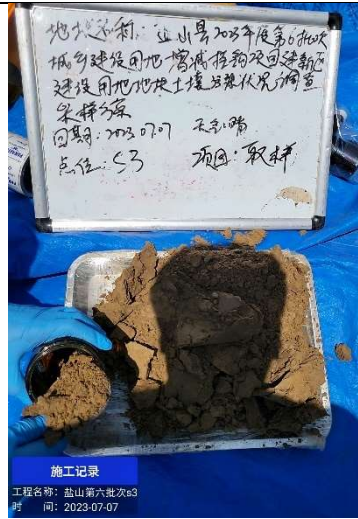 地块名称: 盐山县2023年度第6批次
城乡建设用地增减挂钩项目建新区
建设用地地块土壤污染状况调查
采样方案
日期: 2023.07.07 天气: 晴
点位: S3 项目: 取样
施工记录
工程名称: 盐山第六批次s3
时 间: 2023-07-07